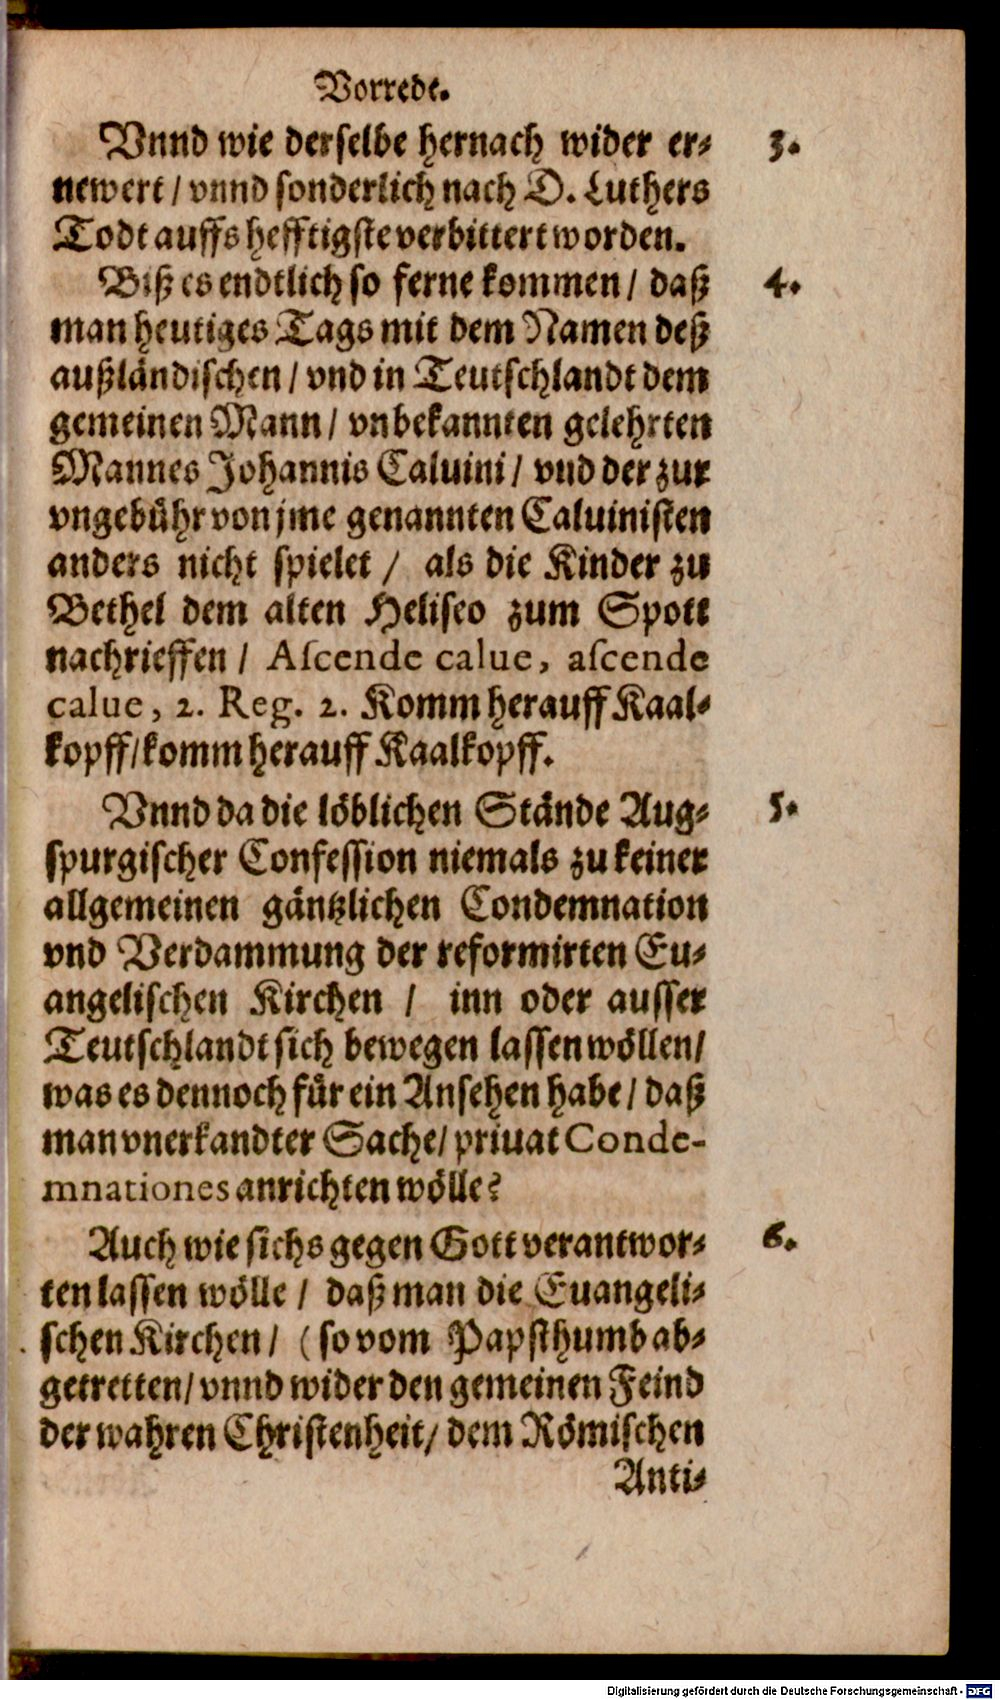 Vorrede.
Vnnd wie derselbe hernach wider er- 3.
newert / vnnd sonderlich nach D. Luthers
Todt auffs hefftigste verbittert worden.
Biß es endtlich so ferne kommen / daß 4.
man heutiges Tags mit dem Namen deß
außländischen / vnd in Teutschlandt dem
gemeinen Mann / vnbekannten gelehrten
Mannes Johannis Caluini / vnd der zur
vngebühr von jme genannten Caluinisten
anders nicht spielet / als die Kinder zu
Bethel dem alten Heliseo zum Spott
nachrieffen / Ascende calue, ascende
calue, 2. Reg. 2. Komm herauff Kaal-
kopff/ komm herauff Kaalkopff.
Vnnd da die löblichen Stände Aug- 5.
spurgischer Confession niemals zu keiner
allgemeinen gäntzlichen Condemnation
vnd Verdammung der reformirten Eu-
angelischen Kirchen / inn oder ausser
Teutschlandt sich bewegen lassen wöllen/
was es dennoch für ein Ansehen habe / daß
man vnerkandter Sache/ priuat Conde-
mnationes anrichten wölle?
Auch wie sichs gegen Gott verantwor- 6.
ten lassen wölle / daß man die Euangeli-
schen Kirchen / (so vom Papsthumb ab-
getretten/ vnnd wider den gemeinen Feind
der wahren Christenheit/ dem Römischen
Anti-
Digitalisierung gefördert durch die Deutsche Forschungsgemeinschaft - DFG